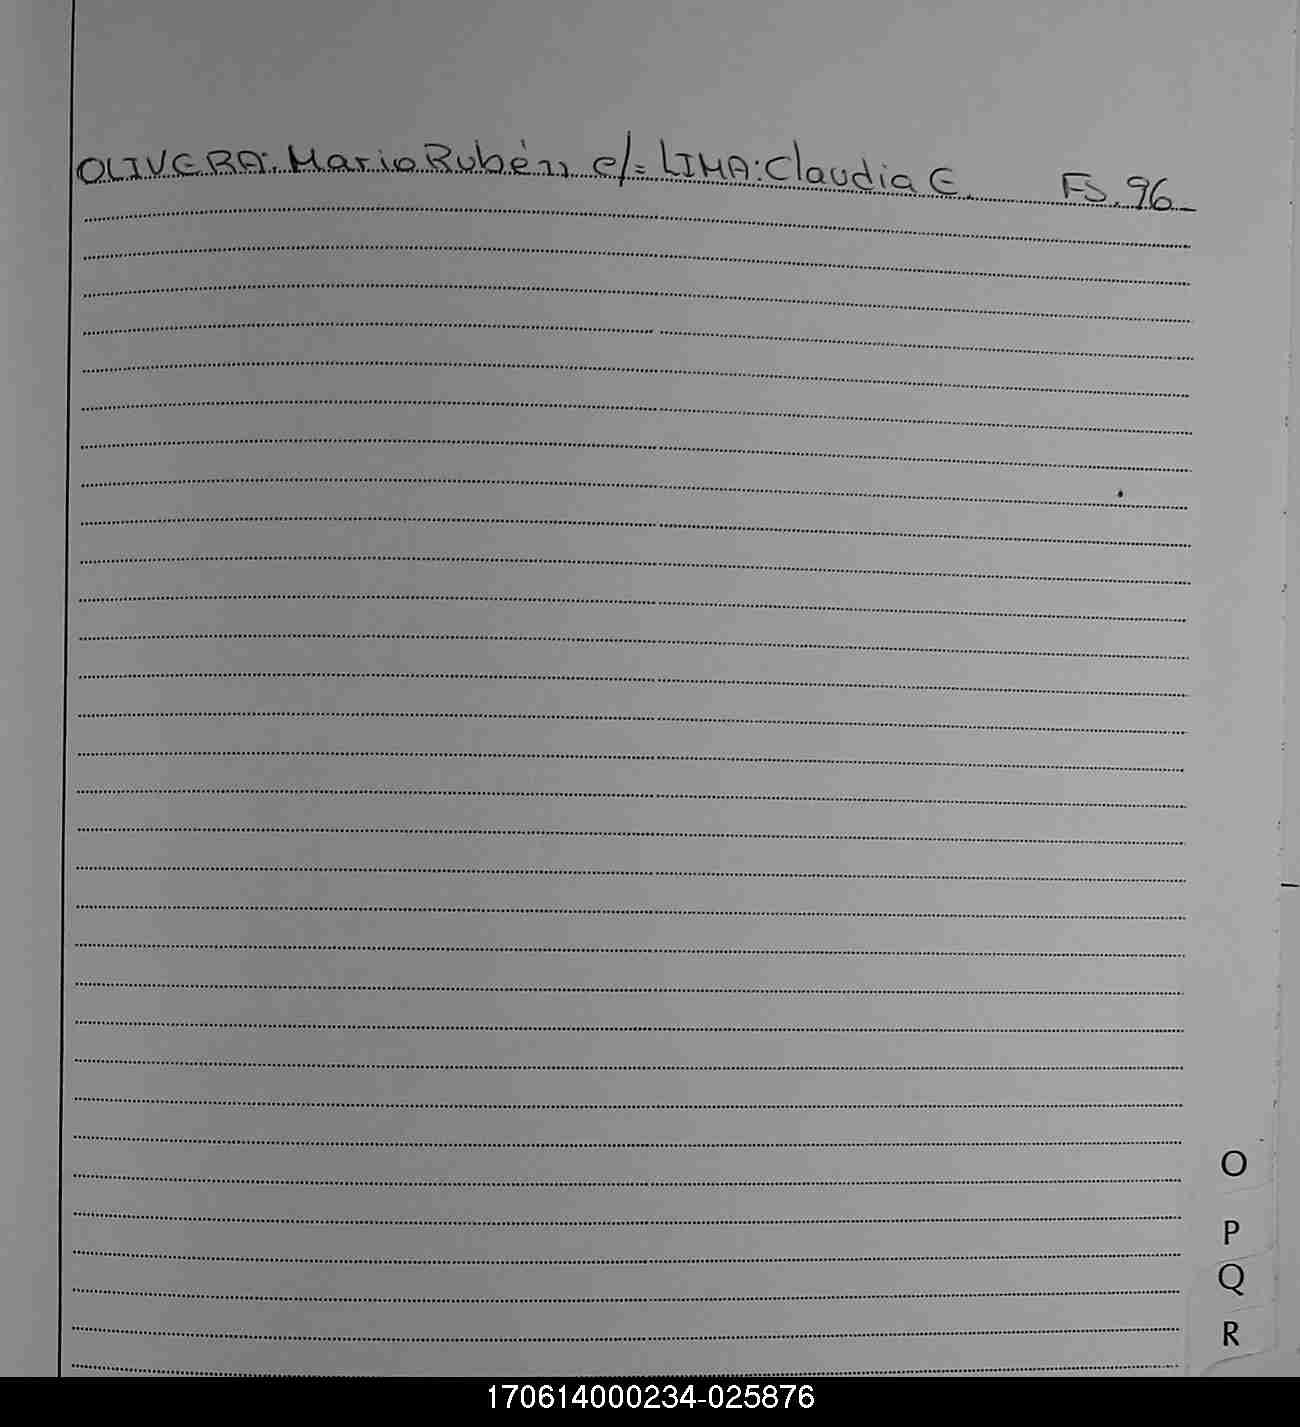 OLIVERA: Mario Rubén c/= LIMA: Claudia E. FS. 96_
O
P
Q
R
170614000234-025876